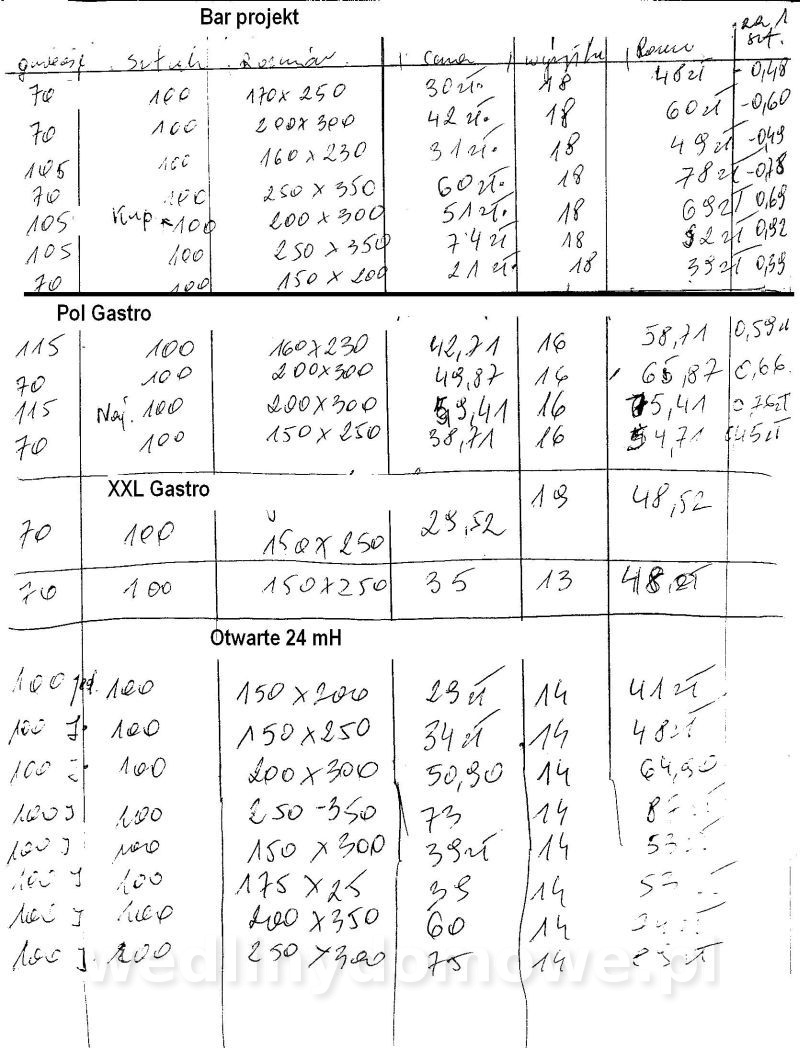 Bar projekt
za 1
szt.
Sztuk Rozmiar cena wysyłka Razem
70 100 170 x 250 30 zł. 18 48 zł - 0,48
70 100 200 x 300 42 zł. 18 60 zł - 0,60
105 100 160 x 230 31 zł. 18 49 zł - 0,49
70 100 250 x 350 60 zł. 18 78 zł - 0,78
105 Kup 100 200 x 300 51 zł. 18 69 zł 0,69
105 100 250 x 350 74 zł 18 92 zł 0,92
70 100 150 x 200 21 zł. 18 39 zł 0,39
Pol Gastro
115 100 160 x 230 42,71 16 58,71 0,59 zł
70 100 200 x 300 49,87 16 65,87 0,66.
115 Naj. 100 200 x 300 59,41 16 75,41 0,76 zł
70 100 150 x 250 38,71 16 54,71 0,45 zł
XXL Gastro
70 100 150 x 250 29,52 19 48,52
70 100 150 x 250 35 13 48 zł
Otwarte 24 mH
100 jed. 100 150 x 200 29 zł 14 41 zł
100 J. 100 150 x 250 34 zł 14 48 zł
100 J. 100 200 x 300 50,90 14 64,90
100 J 100 250 - 350 73 14 87 zł
100 J 100 150 x 300 39 zł 14 53 zł
100 J 100 175 x 25 39 14 53 zł
100 J 100 200 x 350 60 14 zł
100 J 100 250 x 300 75 14 zł
wedlinydomowe.pl